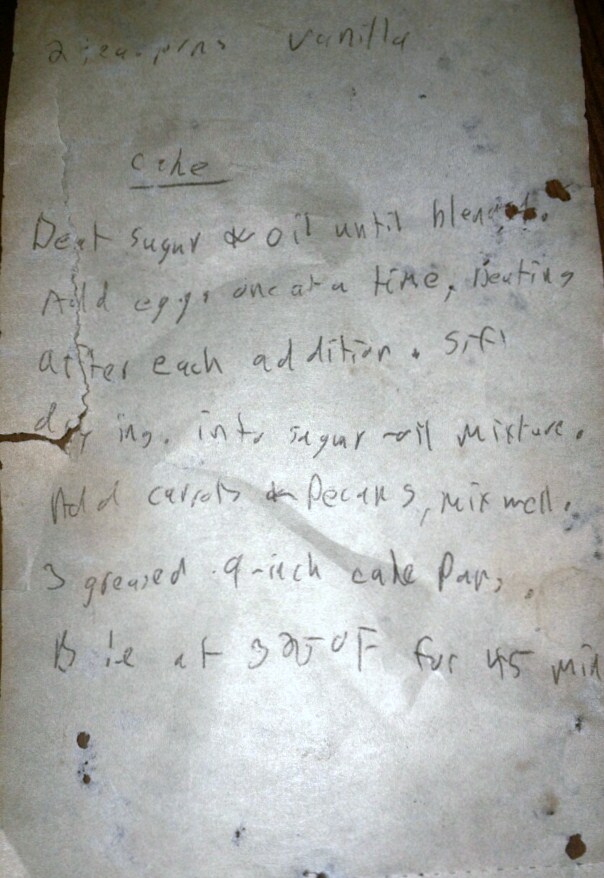 2 teaspns vanilla
cake
Beat sugar & oil until blended.
Add eggs one at a time, Beating
after each addition. Sift
dry ing. into sugar-oil mixture.
Add carrots & Pecans, mix well.
3 greased 9-inch cake Pans.
Bake at 325°F for 45 min